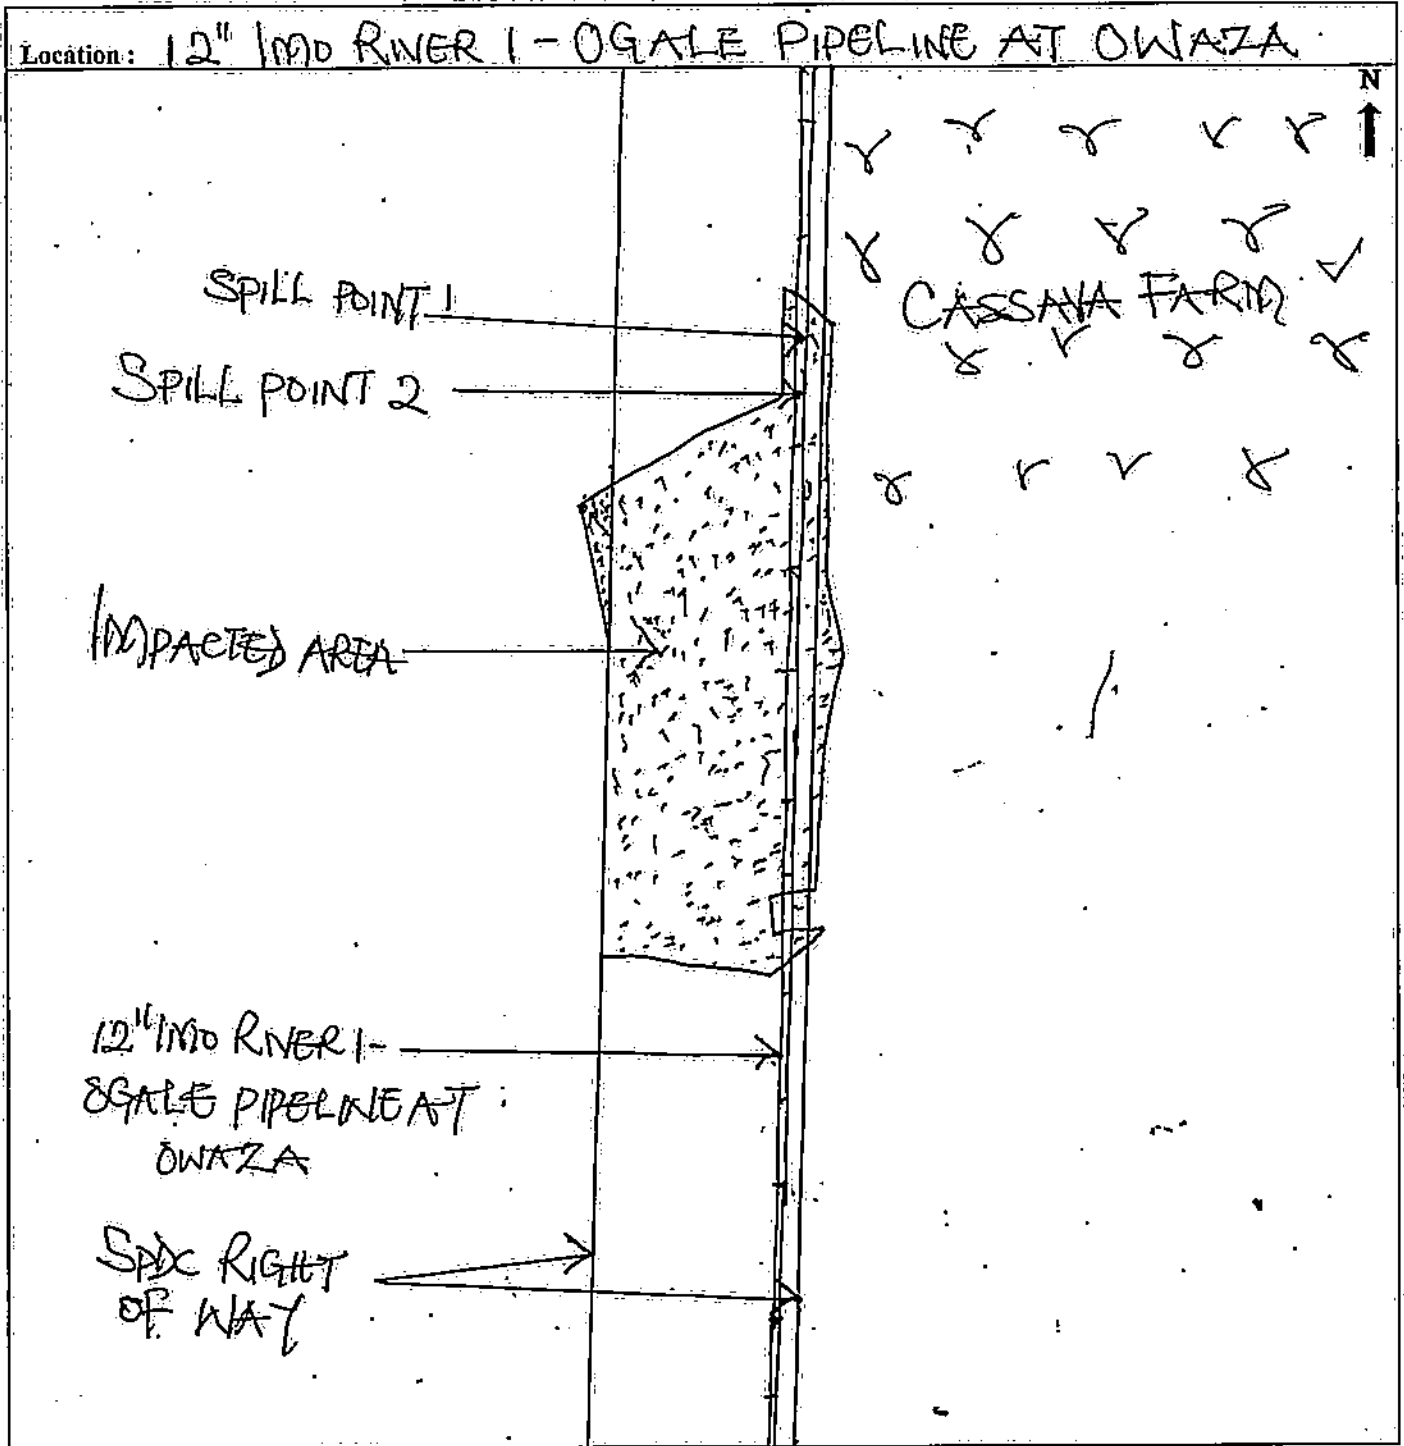 Location: 12" IMO RIVER 1 - OGALE PIPELINE AT OWAZA
N
SPILL POINT 1
CASSAVA FARM
SPILL POINT 2
IMPACTED AREA
12" IMO RIVER 1-
OGALE PIPELINE AT
OWAZA
SPDC RIGHT
OF WAY